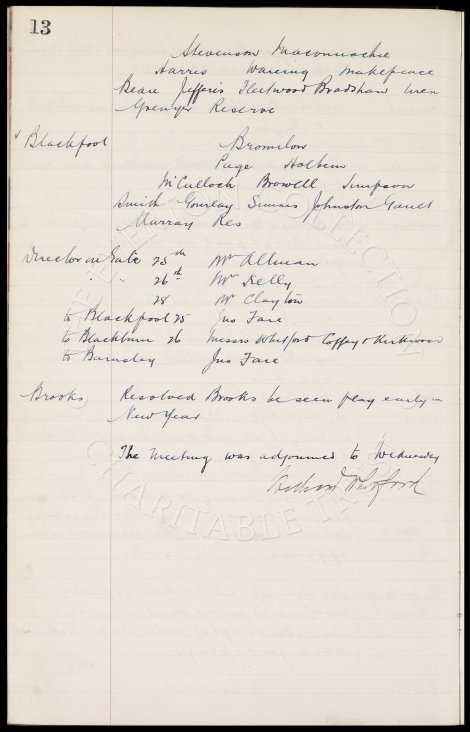 13
Stevenson Maconnachie
Harris Wareing Makepeace
Beare Jefferis Fleetwood Bradshaw Uren
Grenyer Reserve
v Blackpool Bromilow
Page Holbem
McCulloch Browell Simpson
Smith Gourlay Simms Johnston Gault
Murray Res
Director on Gate 25th Mr Allman
" " 26th Mr Kelly
28 Mr Clayton
to Blackpool 25 Jno Fare
to Blackburn 26 Messrs Whitford Coffey & Kirkwood
to Barnsley Jno Fare
Brooks Resolved Brooks be seen play early in
New Year
The Meeting was adjourned to Wednesday
Whitford
THE EVERTON COLLECTION
CHARITABLE TRUST
©